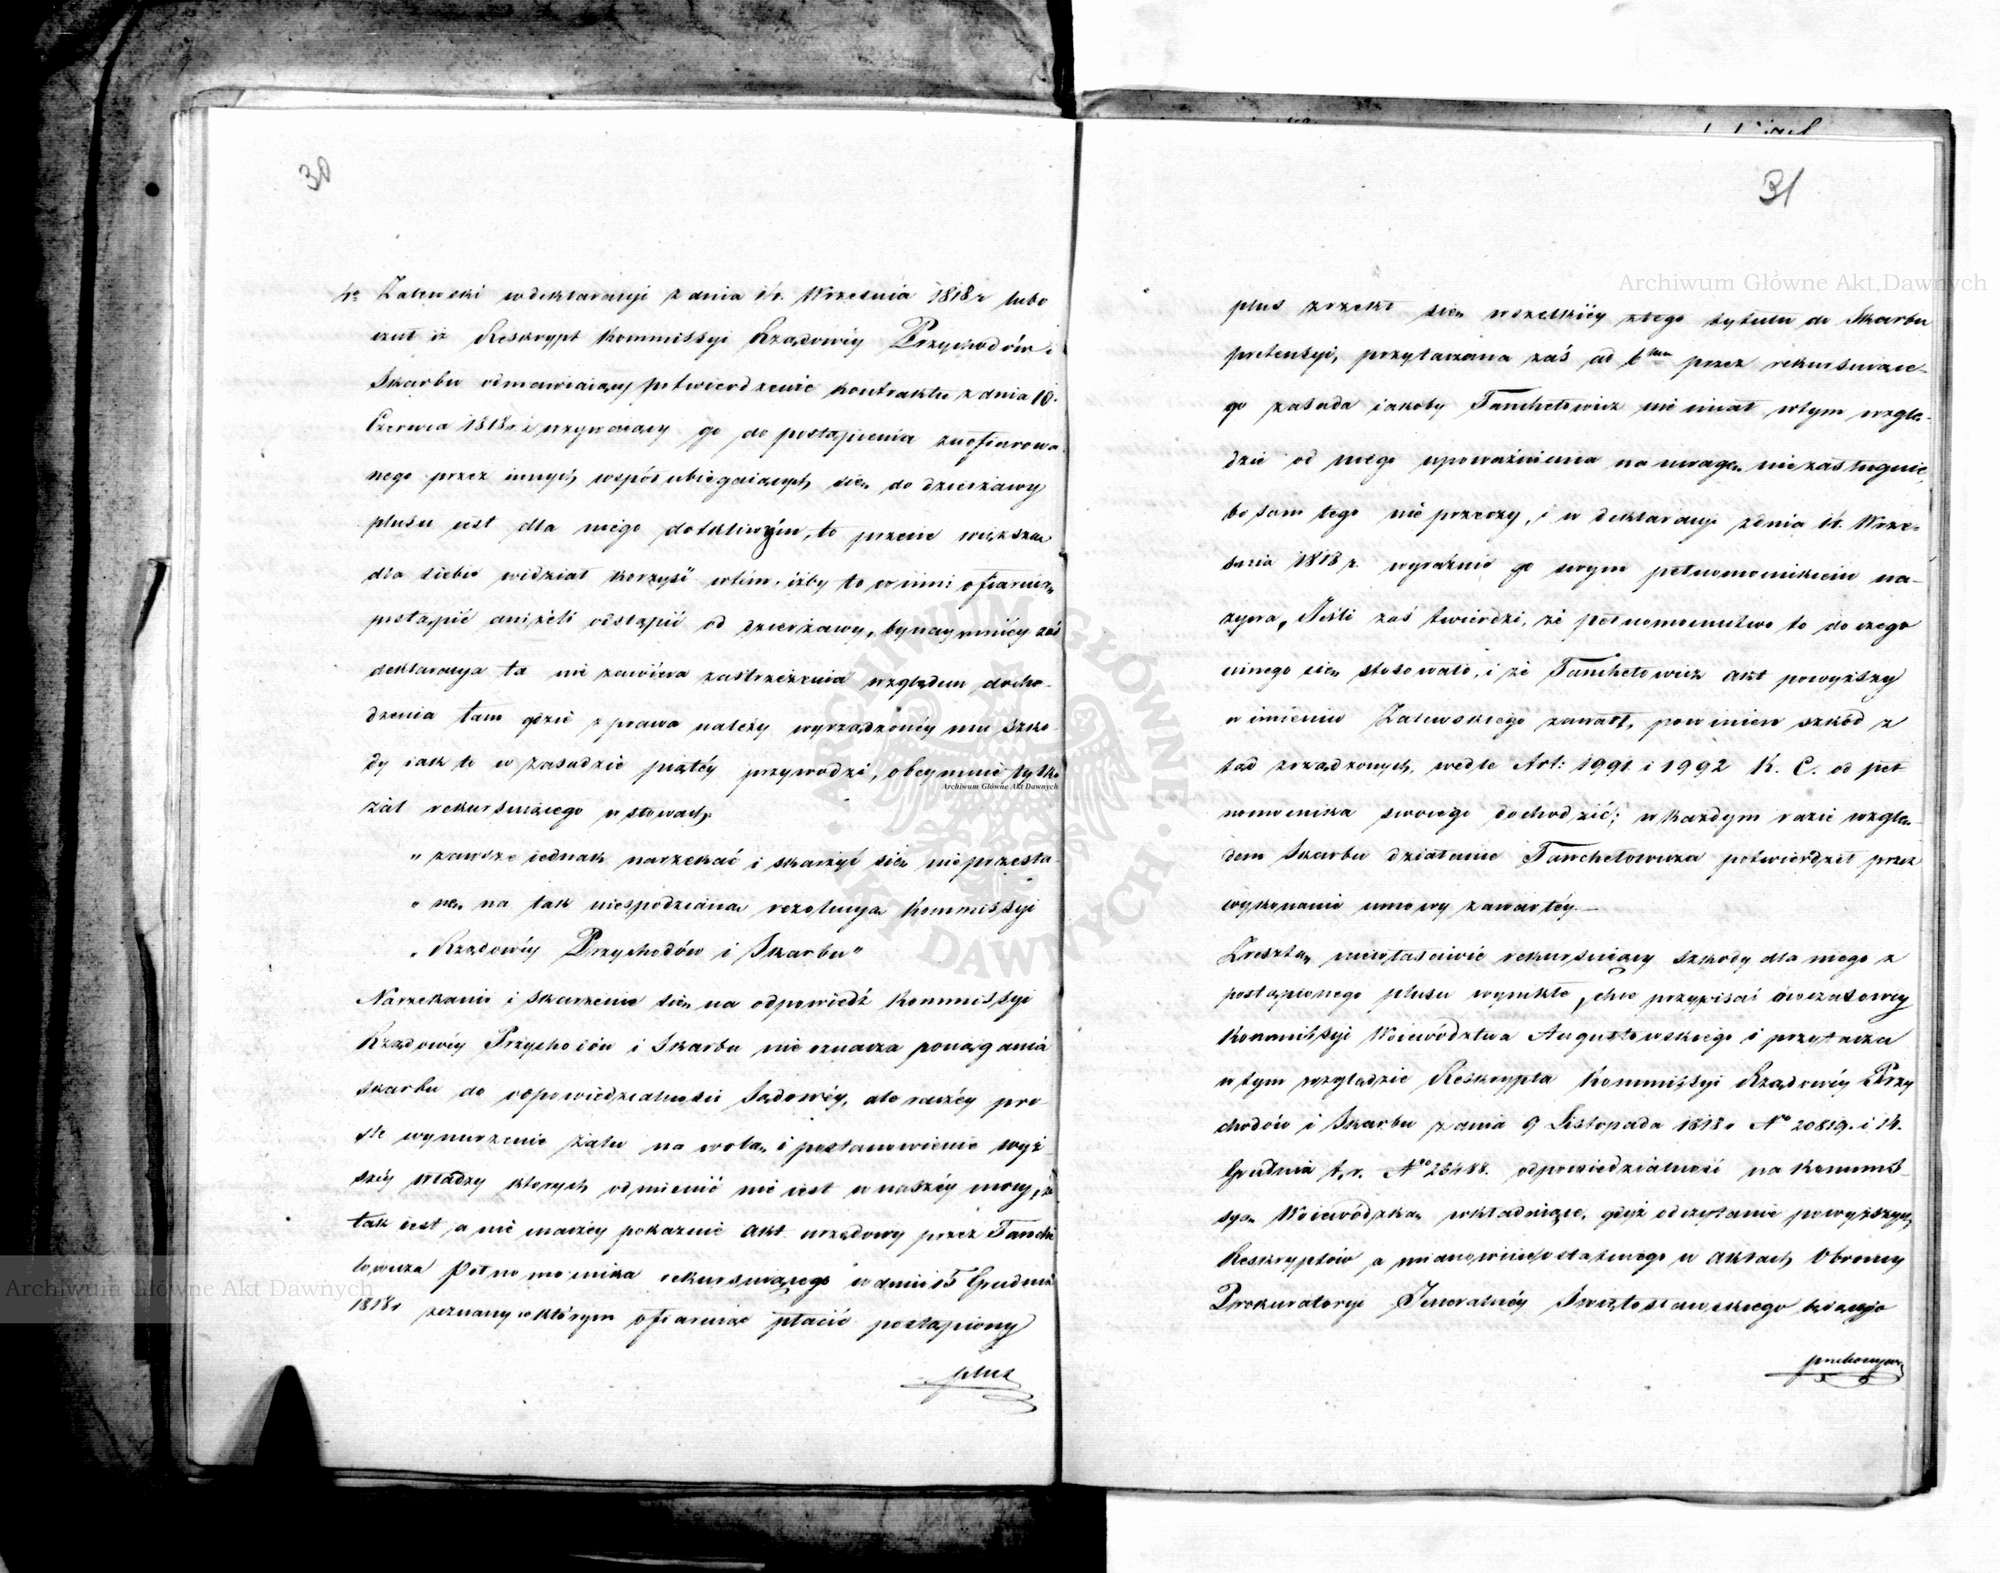 30
Zalewski w deklaracyi z dnia 14. Września 1818 r lubo
czuł iż Reskrypt Kommissyi Rządowéy Przychodów i
Skarbu odmawiaiący potwierdzenie kontraktu z dnia 10.
Czerwca 1818 r. i wzywaiący go do postąpienia zaofiarowa
nego przez innych współubiegaiących się do dzierżawy
plusu iest dla niego dotkliwym, to przecie większą
dla siebie widział korzyść w tém, iżby to w inni ofiaruią
postąpić aniżeli odstąpić od dzierżawy, bynaymniéy zaś
deklaracya ta nie zawiéra zastrzeżenia względem docho-
dzenia tam gdzie z prawa należy wyrządzonéy mu szko-
dy iak to w zasadzie piątéy przywodzi, obeymuie tylko
żal rekursuiącego w słowach:
„ zawsze iednak narzekać i skarżyć się nieprzesta
„ nę na tak niespodzianą rezolucyą Kommissyi
„ Rządowéy Przychodów i Skarbu"
Narzekanie i skarżenie się na odpowiedź Kommissyi
Rządowéy Przychodów i Skarbu nie oznacza pociągania
skarbu do odpowiedzialności Sądowéy, ale raczéy pro-
ste wynurzenie żalu na wolą i postanowienie wyż
széy władzy których odmienić nie iest w naszéy mocy, że
tak iest a nie inaczéy pokazuie akt urzędowy przez Tanche
lowicza Pełnomocnika rekursuiącego w dniu 15 Grudnia
1818 r zeznany w którym ofiaruiąc płacić postąpiony
plus
31
plus zrzekł się wszelkiéy z tego tytułu do Skarbu
pretensyi, przytaczana zaś ad 6tum przez rekursuiące-
go zasada iakoby Tanchelowicz nie miał w tym wzglę-
dzie od niego upoważnienia na uwagę nie zasługuie,
bo sam tego nie przeczy, i w deklaracyi z dnia 14. Wrze-
śnia 1818 r. wyraźnie go swym pełnomocnikiem na-
zywa, Jeśli zaś twierdzi, że pełnomocnictwo to do czego
innego się stosowało, i że Tanchelowicz akt powyższy
w imieniu Zalewskiego zawarł, powinien szkód z
tąd zrządzonych, wedle Art: 1991 i 1992 K. C. od peł
nomocnika swoiego dochodzić; w każdym razie wzglę-
dem Skarbu działanie Tanchelowicza potwierdził przez
wykonanie umowy zawartéy.—
Zresztą niewłaściwie rekursuiący szkody dla niego z
postąpionego plusu wynikłe, chce przypisać ówczasowéy
Kommissyi Woiewództwa Augustowskiego i przytacza
w tym względzie Reskrypta Kommissyi Rządowéy Przy
chodów i Skarbu z dnia 9 Listopada 1818 r No 20819. i 14.
Grudnia t. r. No 23488. odpowiedzialność na Kommis-
syą Woiewódzką wkładaiące, gdyż odczytanie powyższych
Reskryptów a mianowicie ostatniego w aktach Obroncy
Prokuratoryi Jeneralnéy Świętosławskiego kopia
Archiwum Główne Akt Dawnych
Archiwum Główne Akt Dawnych
Archiwum Główne Akt Dawnych
ARCHIWUM GŁÓWNE AKT DAWNYCH